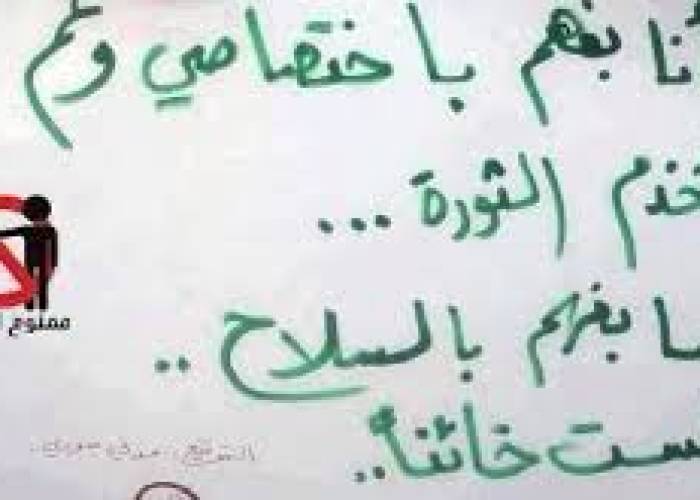 أنا بفهم باختصاصي ولم
خدم الثورة ...
ما بفهم بالسلاح ..
ست خائناً ..
ممنوع
التوقيع: